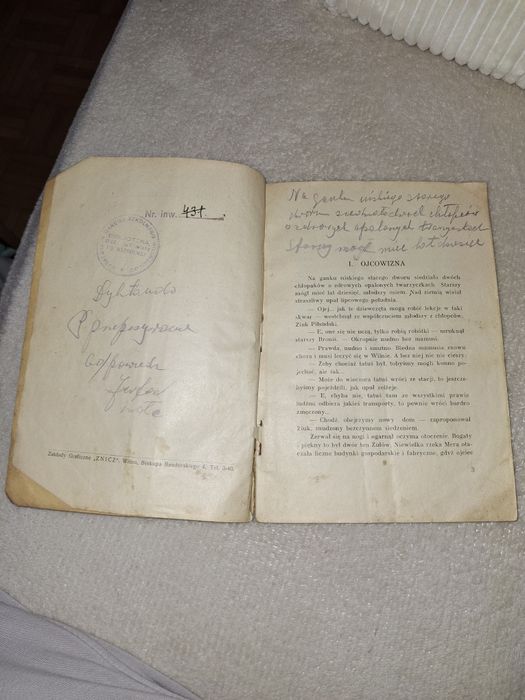 Nr. inw. 431
Dyktando
odpowiedzi
Zakłady Graficzne „ZNICZ”, Wilno, Biskupa Bandurskiego 4, Tel. 3-40.
Na ganku niskiego starego
dworu siedziało dwóch chłopców
o zdrowych opalonych twarzyczkach
Starszy mógł mieć lat dziesięć
I. OJCOWIZNA
Na ganku niskiego starego dworu siedziało dwóch
chłopaków o zdrowych opalonych twarzyczkach. Starszy
mógł mieć lat dziesięć, młodszy osiem. Nad ziemią wisiał
straszliwy upał lipcowego południa.
— Ojej, jak te dziewczęta mogą robić lekcje w taki
skwar — westchnął ze współczuciem młodszy z chłopców,
Ziuk Piłsudski.
— E, one się nie uczą, tylko robią robótki — mruknął
starszy Broniś. — Okropnie nudno bez mamusi.
— Prawda, nudno i smutno. Biedna mamusia znowu
chora i musi leczyć się w Wilnie. A bez niej nic nie cieszy.
— Żeby chociaż tatuś był, tobyśmy mogli konno po-
jechać, ale tak...
— Może do wieczora tatuś wróci ze stacji, to jeszcze-
byśmy pojeździli, jak upał zelżeje.
— E, chyba nie, tatuś tam ze wszystkimi prawie
ludźmi odbiera jakieś transporty, to pewnie wróci bardzo
zmęczony...
— Chodź, obejrzymy nowy dom — zaproponował
Ziuk, znudzony bezczynnem siedzeniem.
Zerwał się na nogi i ogarnął oczyma otoczenie. Bogaty
i piękny to był dwór ten Zułów. Niewielka rzeka Mera ota-
czała liczne budynki gospodarskie i fabryczne, gdyż ojciec
3